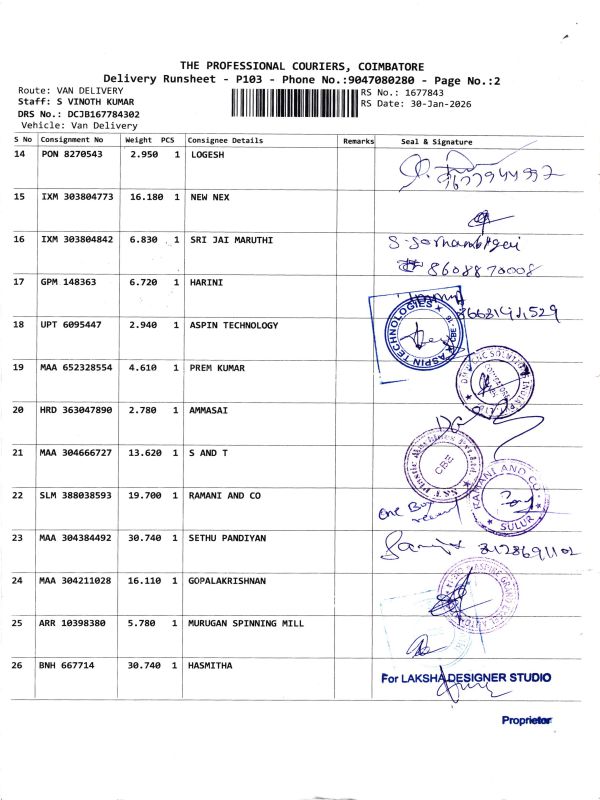 THE PROFESSIONAL COURIERS, COIMBATORE
Delivery Runsheet - P103 - Phone No.:9047080280 - Page No.:2
Route: VAN DELIVERY
RS No.: 1677843
Staff: S VINOTH KUMAR
RS Date: 30-Jan-2026
DRS No.: DCJB167784302
Vehicle: Van Delivery
S No Consignment No Weight PCS Consignee Details Remarks Seal & Signature
14 PON 8270543 2.950 1 LOGESH
15 IXM 303804773 16.180 1 NEW NEX
16 IXM 303804842 6.830 1 SRI JAI MARUTHI
8608870008
17 GPM 148363 6.720 1 HARINI
18 UPT 6095447 2.940 1 ASPIN TECHNOLOGY
ASPIN TECHNOLOGIES
CBE
19 MAA 652328554 4.610 1 PREM KUMAR
20 HRD 363047890 2.780 1 AMMASAI
21 MAA 304666727 13.620 1 S AND T
CBE
22 SLM 388038593 19.700 1 RAMANI AND CO
RAMANI AND CO.
SULUR
One Box
23 MAA 304384492 30.740 1 SETHU PANDIYAN
24 MAA 304211028 16.110 1 GOPALAKRISHNAN
25 ARR 10398380 5.780 1 MURUGAN SPINNING MILL
26 BNH 667714 30.740 1 HASMITHA
For LAKSHA DESIGNER STUDIO
Proprietor